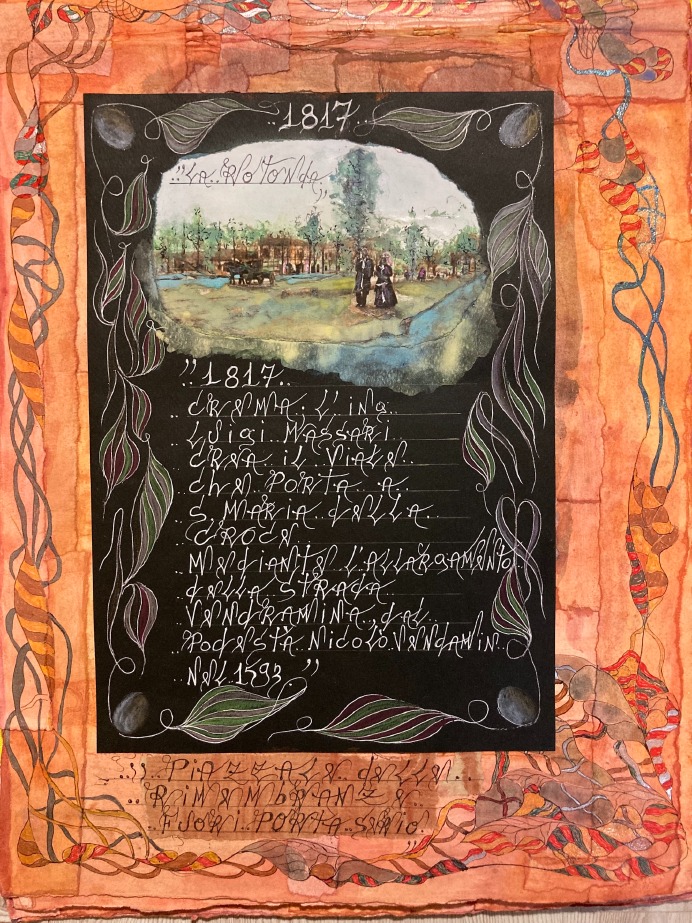 ..1817..
"La Rotonda"
"1817..
Crema: l'ing.
Luigi Massari
crea il viale
che porta a
S. Maria della
Croce
mediante l'allargamento
della strada
Vendramina, dal
Podestà Nicolò Vendamin
nel 1593."
..." Piazzale delle..
Rimembranze
Fuori Porta Serio.."